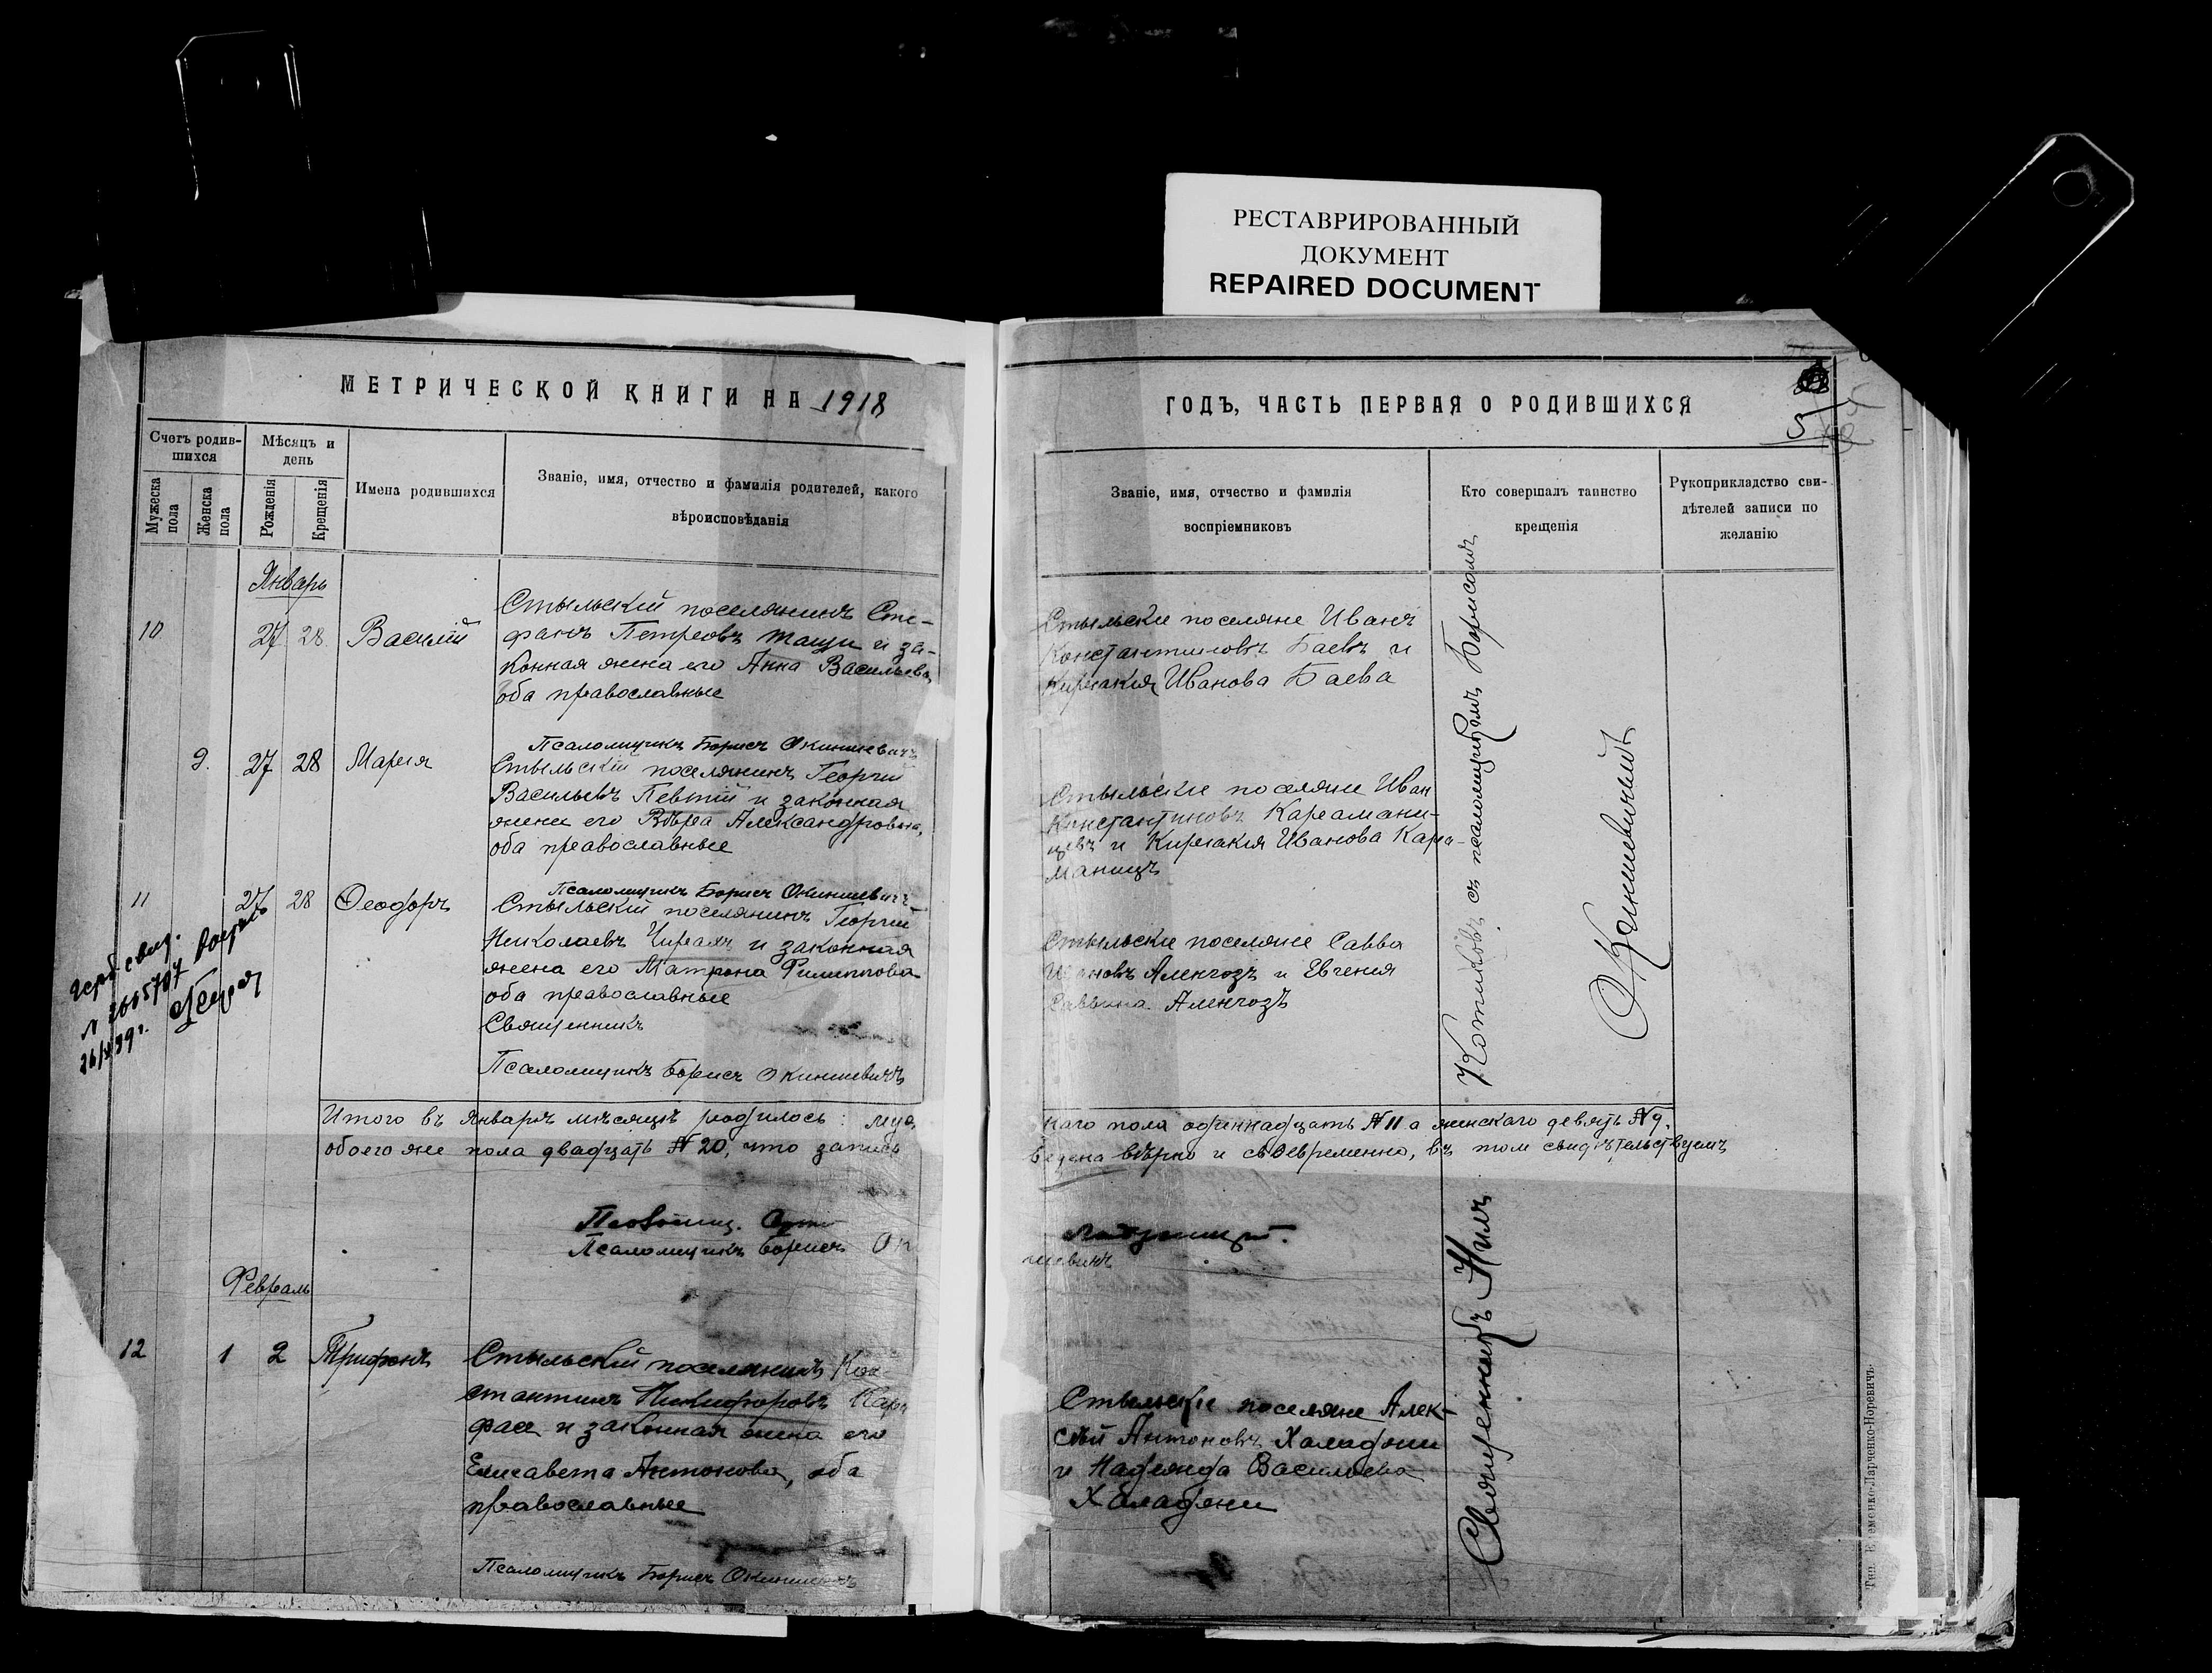 РЕСТАВРИРОВАННЫЙ
ДОКУМЕНТ
REPAIRED DOCUMENT
МЕТРИЧЕСКОЙ КНИГИ НА 1918
Счетъ родив-
шихся
Мѣсяцъ и
день
Мужеска
пола
Женска
пола
Рожденія
Крещенія
Имена родившихся
Званіе, имя, отчество и фамилія родителей, какого
вѣроисповѣданія
Январь
10 27 28 Василій
Стыльскій поселянинъ Сте-
фанъ Петровъ Тащи и за-
конная жена его Анна Васильева,
оба православные
Псаломщикъ Борисъ Окиншевичъ
9. 27 28 Марія
Стыльскій поселянинъ Георгій
Васильевъ Певтій и законная
жена его Вѣра Александровна,
оба православные
Псаломщикъ Борисъ Окиншевичъ
11 27 28 Ѳеодоръ
Стыльскій поселянинъ Георгій
Николаевъ Чираяъ и законная
жена его Матрона Филиппова
оба православные
Священникъ
Псаломщикъ Борисъ Окиншевичъ
свид.
26/ 39 г.
Итого въ Январѣ мѣсяцѣ родилось: муж
обоего же пола двадцать № 20, что запись
Псаломщикъ Борисъ Ок
Февраль
12 1 2 Трифонъ
Стыльскій поселянинъ Кон
стантинъ Никифоровъ
и законная жена его
Елисавета Антонова, оба
православные
Псаломщикъ Борисъ Окиншевичъ
ГОДЪ, ЧАСТЬ ПЕРВАЯ О РОДИВШИХСЯ
5
Званіе, имя, отчество и фамилія
воспріемниковъ
Кто совершалъ таинство
крещенія
Рукоприкладство сви-
дѣтелей записи по
желанію
Стыльскіе поселяне Иванъ
Константиновъ Баевъ и
Киріакія Иванова Баева
Стыльскіе поселяне Иван
Константиновъ Карамани-
цевъ и Киріакія Иванова Кара-
маницъ
Стыльскіе поселяне Савва
Ивановъ Аленгозъ и Евгенія
Саввина Аленгозъ
скаго пола одиннадцать № 11 а женскаго девять № 9.
ведена вѣрно и своевременно, въ томъ свидѣтельствуемъ
шевичъ
Стыльскіе поселяне Алек-
сѣй Антоновъ Халаджи
и Надежда Васильева
Халаджи
Священникъ Нилъ
Котляковъ съ псаломщикомъ Борисомъ
Окиншевичемъ
Тип. Еременко-Ларченко-Норевичъ.